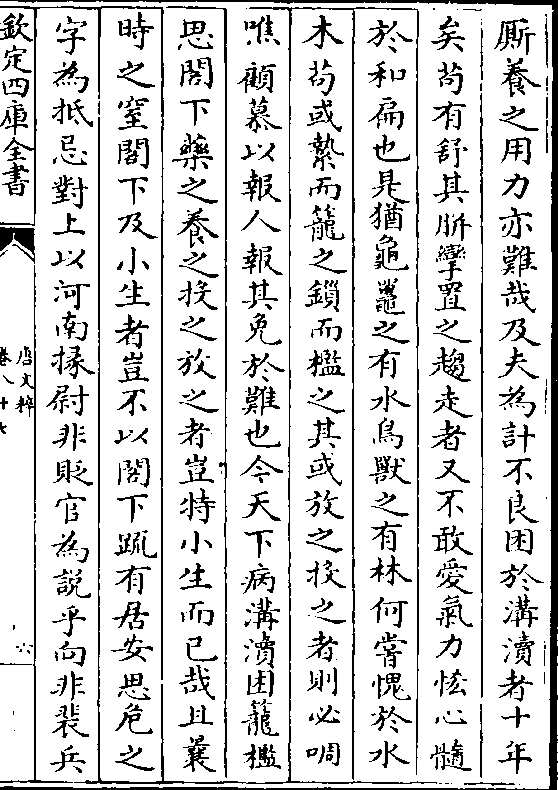 厮養之用力亦難哉及夫為計不良困於溝瀆者十年
矣苟有舒其胻攣置之趨走者又不敢愛氣力恡心髓
於和扁也是猶龜鼉之有水鳥獸之有林何嘗愧於水
木茍或縶而籠之鎖而檻之其或放之投之者則必啁
噍顧慕以報人報其免於難也今天下病溝瀆困籠檻
思閣下藥之養之投之放之者豈特小生而已哉且曩
時之窒閣下及小生者豈不以閣下疏有居安思危之
字為抵忌對上以河南掾尉非貶官為説乎向非裴兵
欽定四庫全書
唐文粹
卷八十七
六